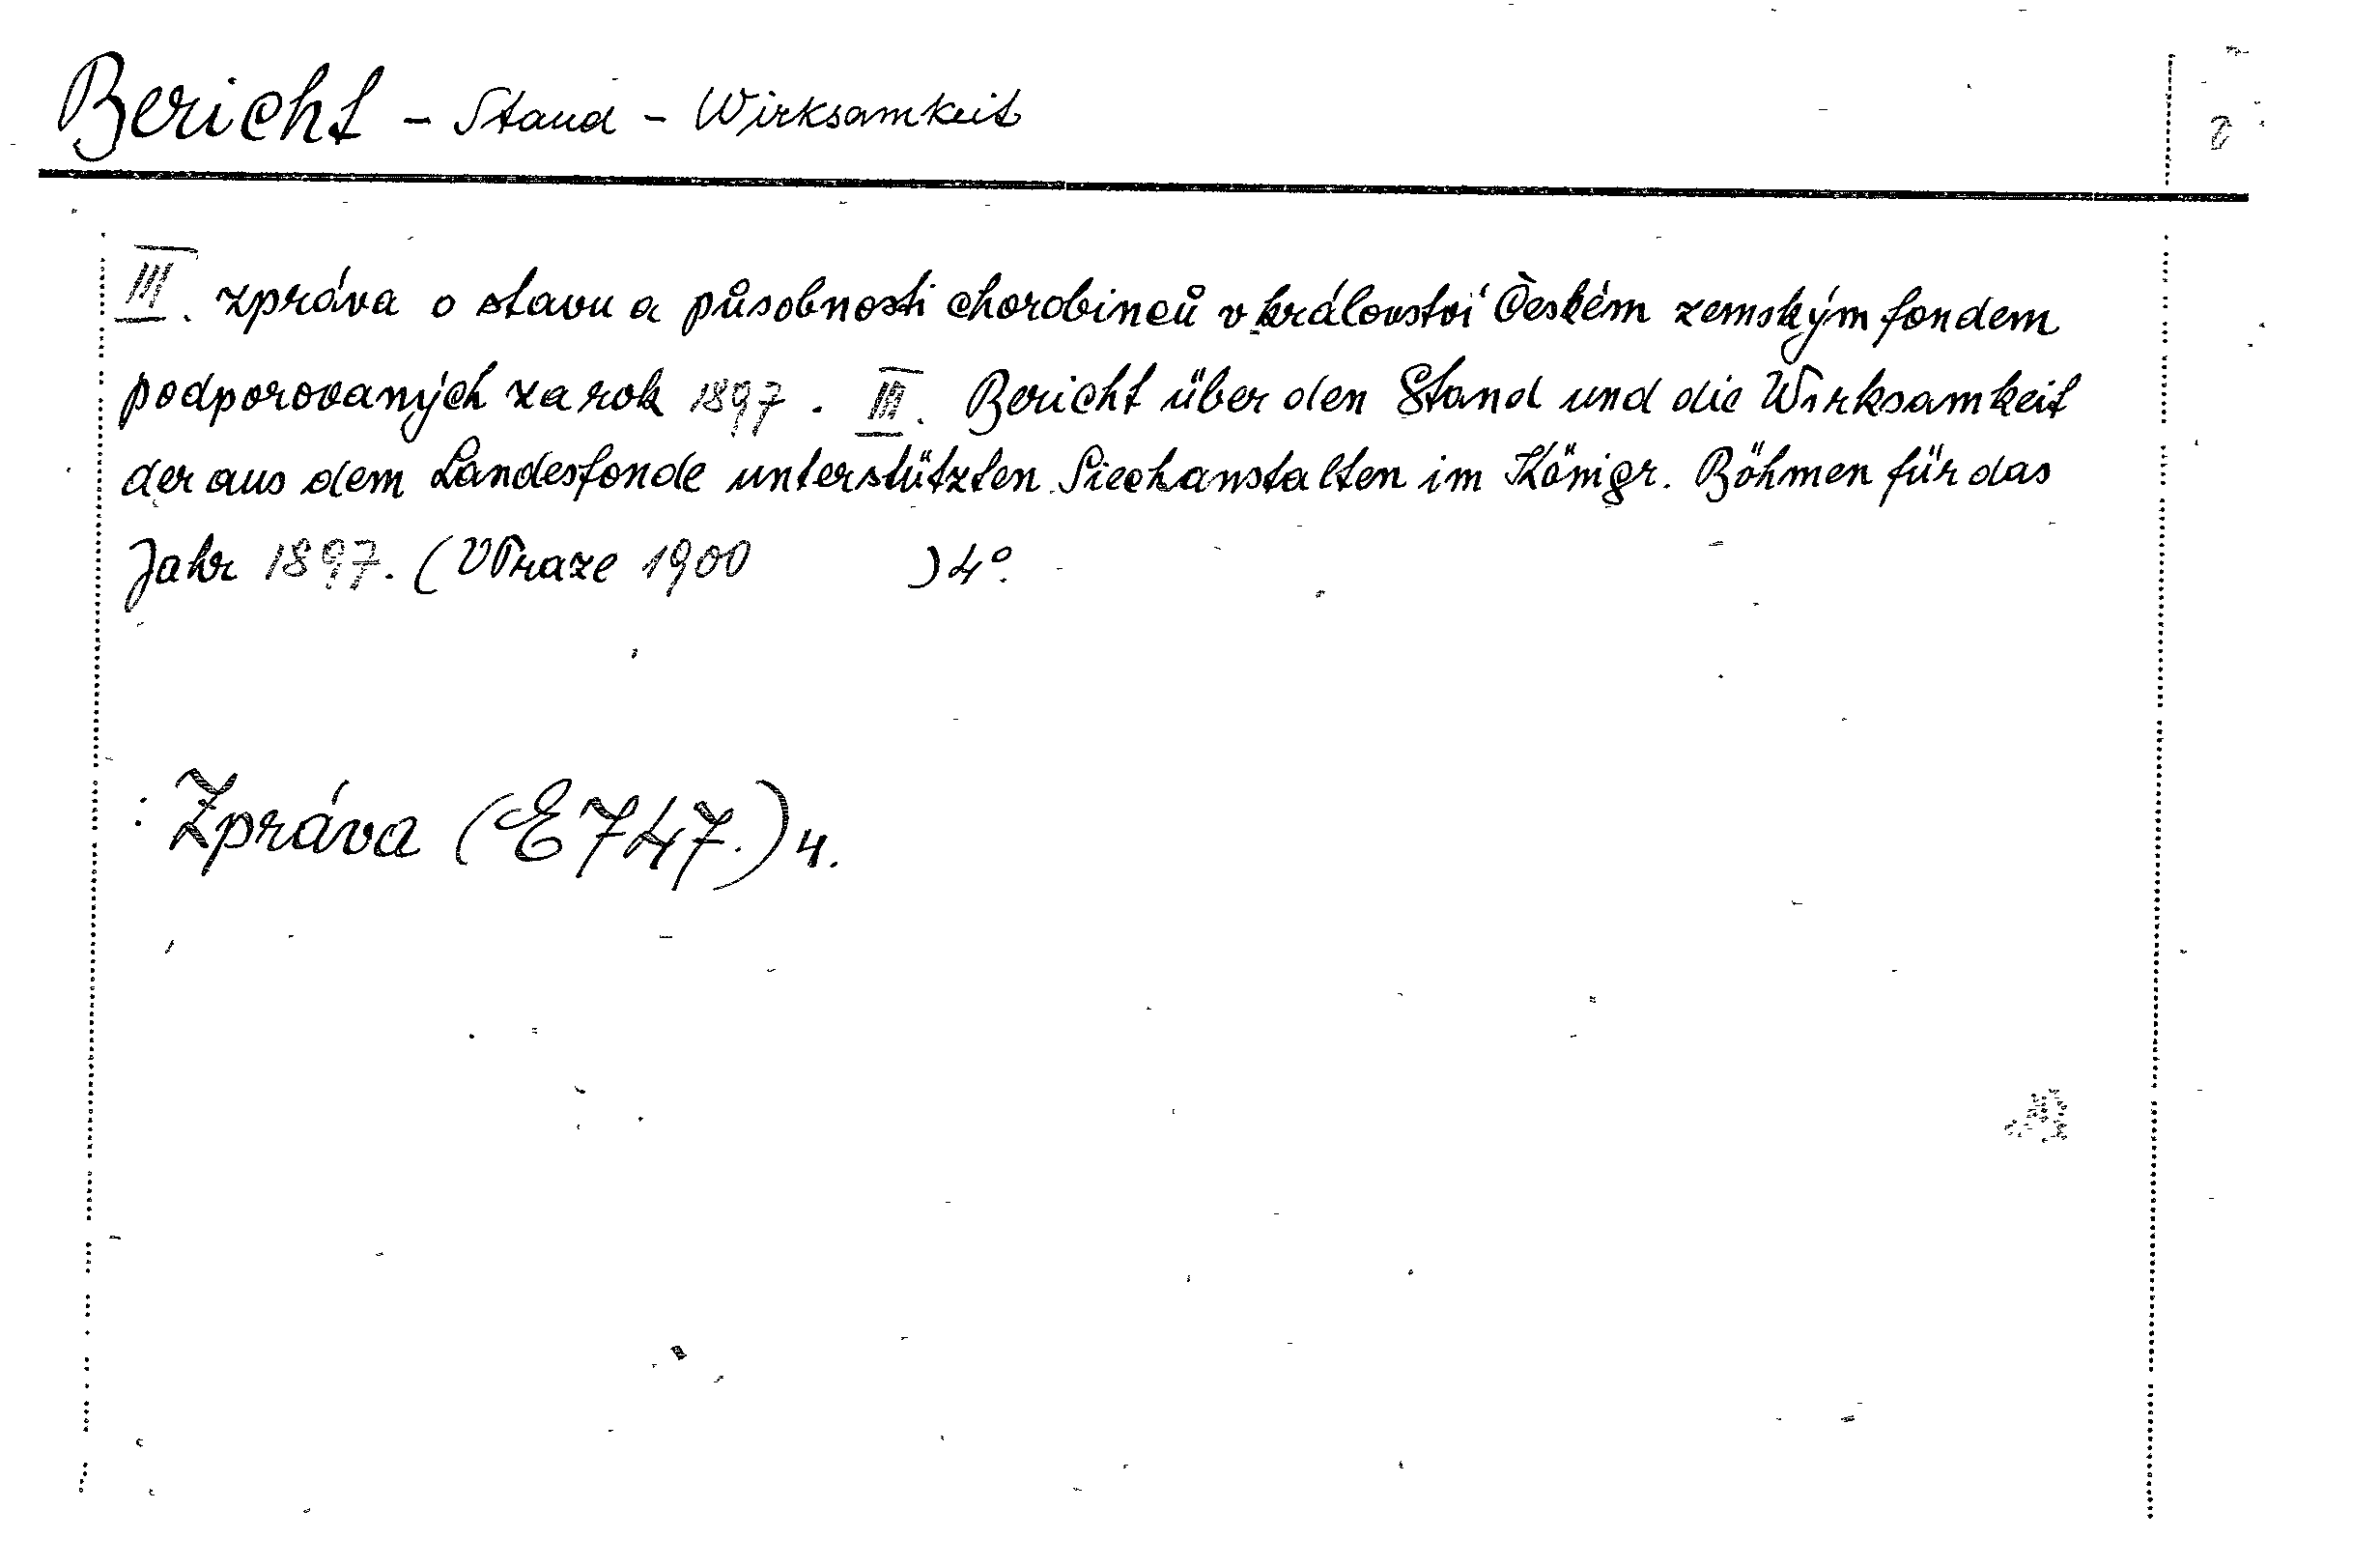 Bericht - Stand - Wirksamkeit
III. zpráva o stavu a působnosti chorobinců v království Českém zemským fondem
podporovaných za rok 1897. III. Bericht über den Stand und die Wirksamkeit
der aus dem Landesfonde unterstützten Siechanstalten im Königr. Böhmen für das
Jahr 1897. (V Praze 1900 ) 4°.
: Zpráva (E747.) 4.